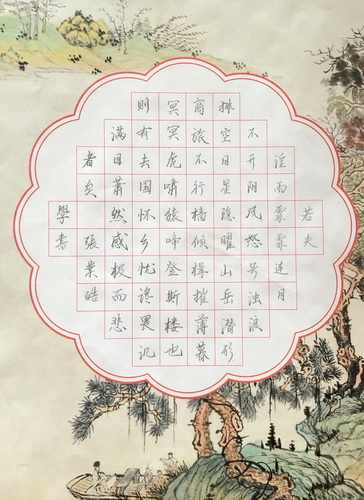 若夫
淫雨霏霏连月
不开阴风怒号浊浪
排空日星隐曜山岳潜形
商旅不行樯倾楫摧薄暮
冥冥虎啸猿啼登斯楼也
則有去国怀乡忧谗畏讥
满目萧然感极而悲
者矣張業皓
學書